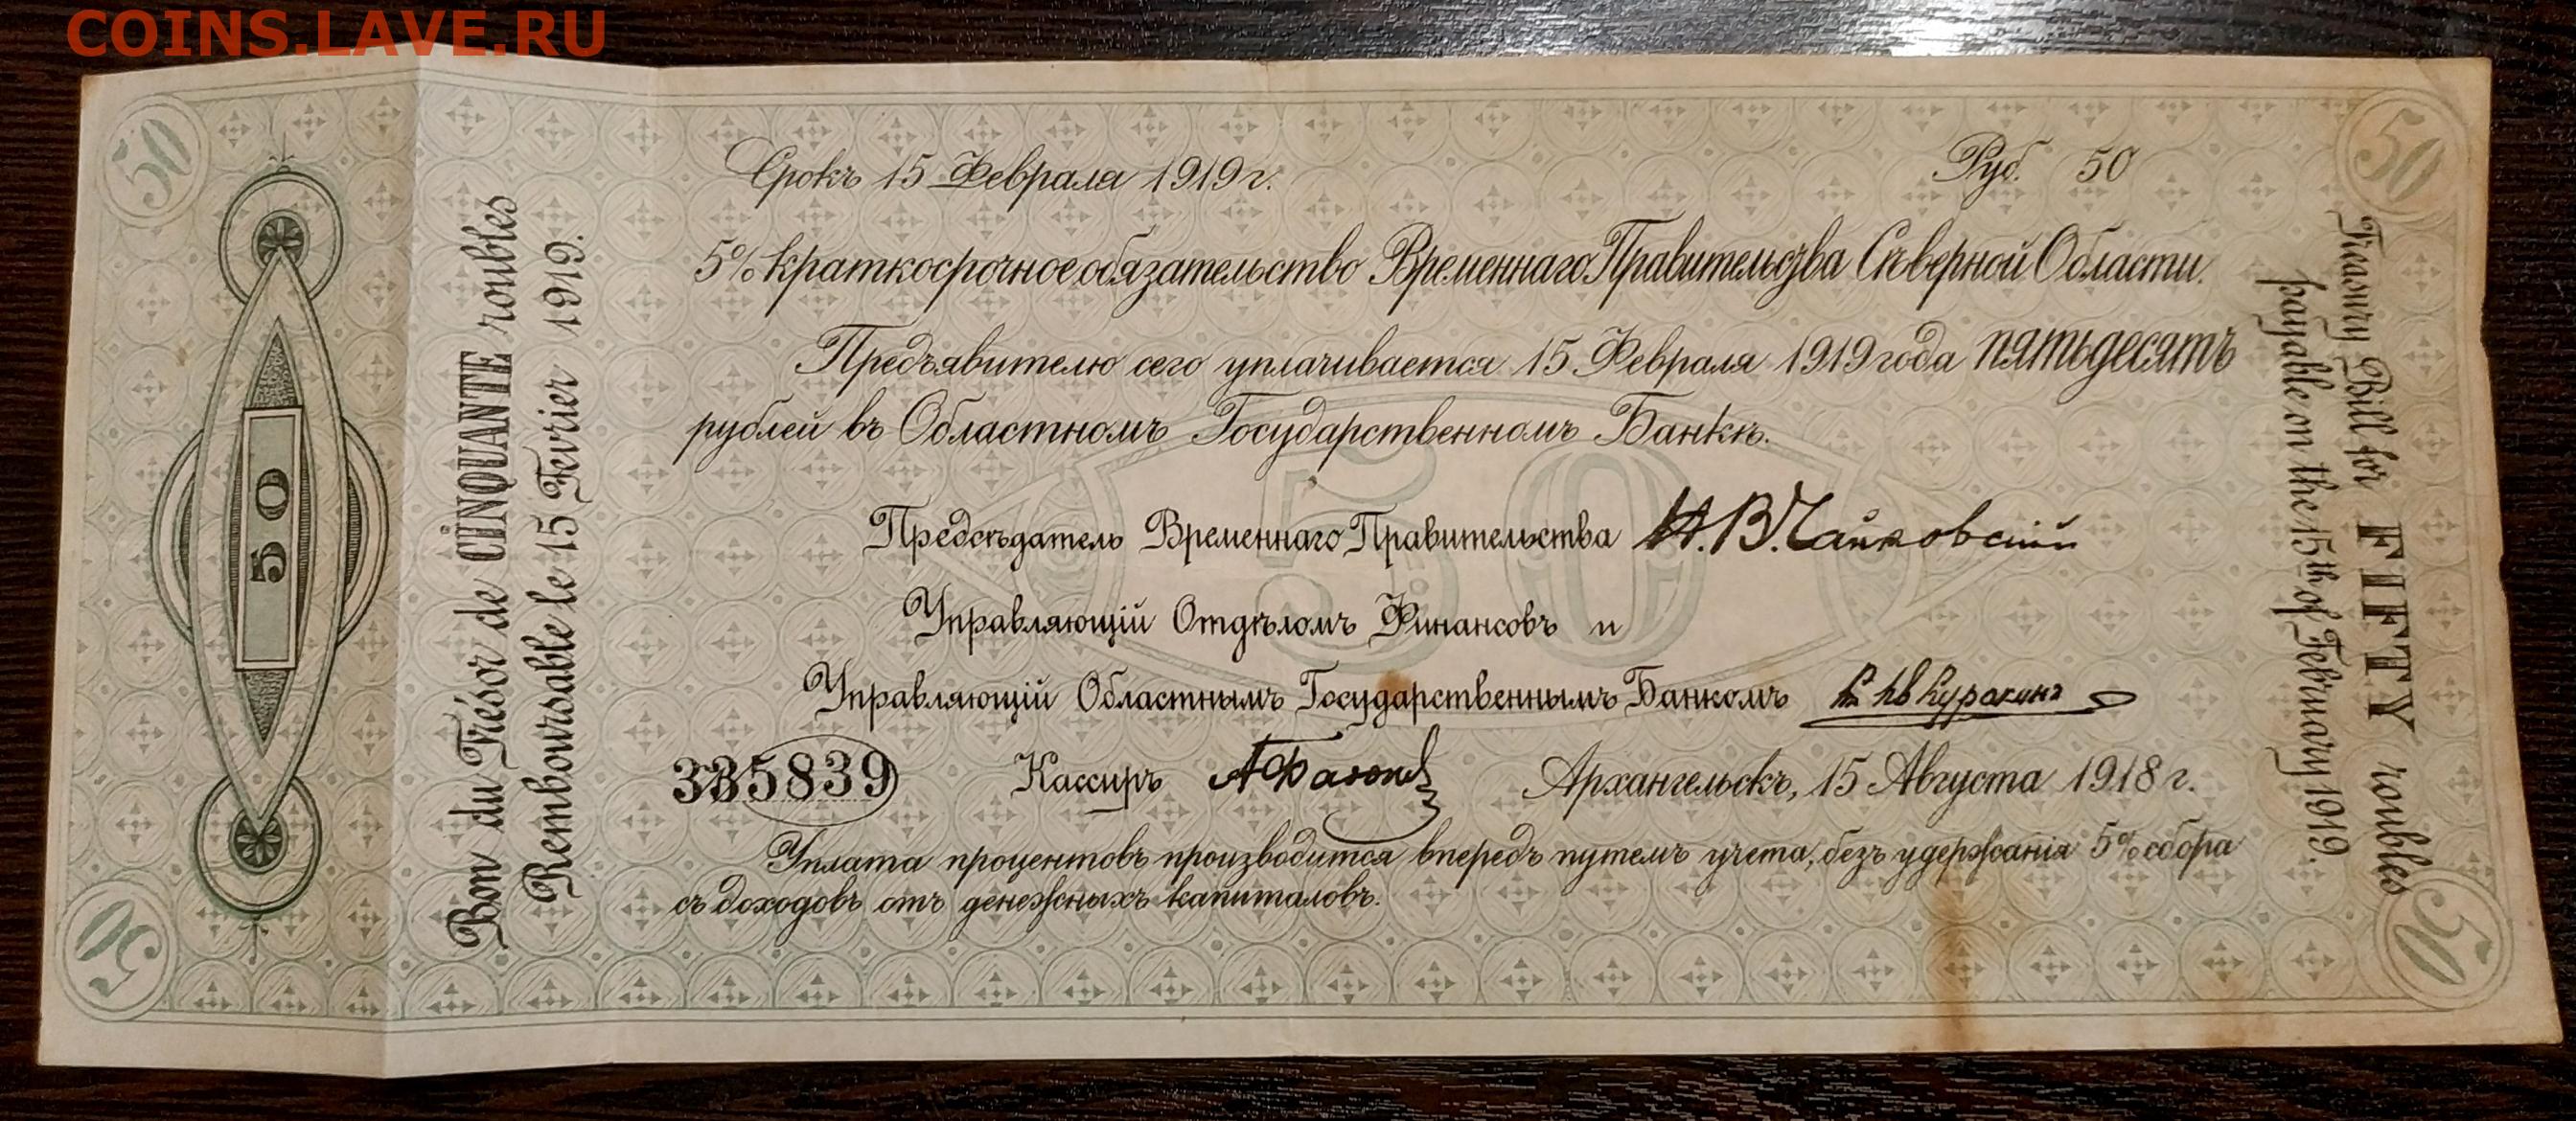 COINS.LAVE.RU
50
50
Срокъ 15 Февраля 1919 г.
Руб. 50
5% краткосрочное обязательство Временнаго Правительства Сѣверной Области.
Предъявителю сего уплачивается 15 Февраля 1919 года пятьдесятъ
рублей въ Областномъ Государственномъ Банкѣ.
50
Предсѣдатель Временнаго Правительства Н.В.Чайковскій
Управляющій Отдѣломъ Финансовъ и
Управляющій Областнымъ Государственнымъ Банкомъ Куракинъ
335839
Кассиръ
Архангельскъ, 15 Августа 1918 г.
Уплата процентовъ производится впередъ путемъ учета, безъ удержанія 5% сбора
съ доходовъ отъ денежныхъ капиталовъ.
50
Bon du Trésor de CINQUANTE roubles
Remboursable le 15 Fevrier 1919.
Treasury Bill for FIFTY roubles
payable on the 15th of February 1919.
50
50